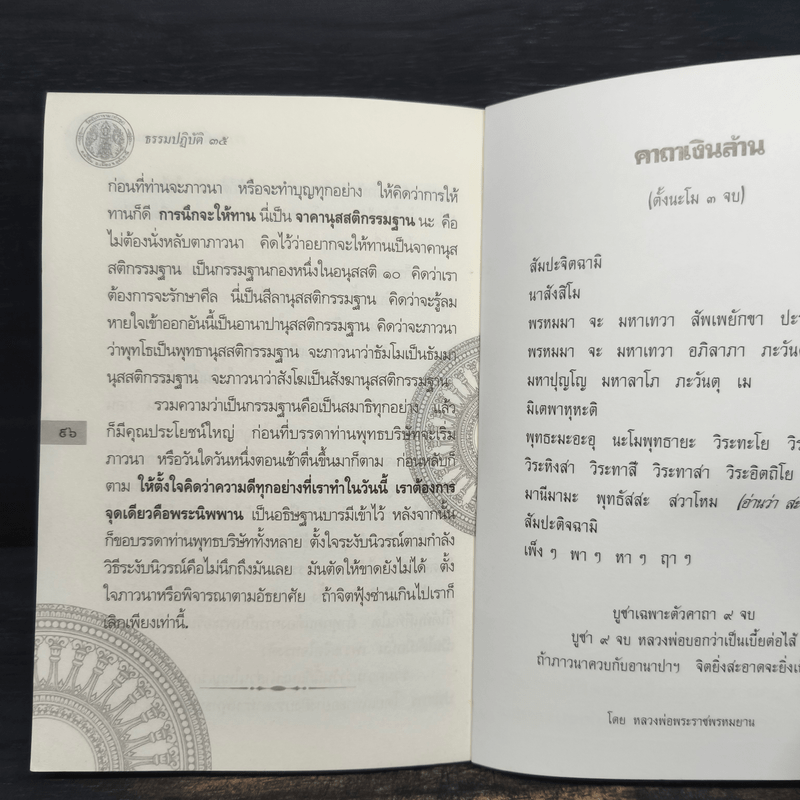 ธรรมปฏิบัติ ๓๕
ก่อนที่ท่านจะภาวนา หรือจะทำบุญทุกอย่าง ให้คิดว่าการให้
ทานก็ดี การนึกจะให้ทาน นี่เป็น จาคานุสสติกรรมฐาน นะ คือ
ไม่ต้องนั่งหลับตาภาวนา คิดไว้ว่าอยากจะให้ทานเป็นจาคานุส
สติกรรมฐาน เป็นกรรมฐานกองหนึ่งในอนุสสติ ๑๐ คิดว่าเรา
ต้องการจะรักษาศีล นี่เป็นสีลานุสสติกรรมฐาน คิดว่าจะรู้ลม
หายใจเข้าออกอันนี้เป็นอานาปานุสสติกรรมฐาน คิดว่าจะภาวนา
ว่าพุทโธเป็นพุทธานุสสติกรรมฐาน จะภาวนาว่าธัมโมเป็นธัมมา
นุสสติกรรมฐาน จะภาวนาว่าสังโฆเป็นสังฆานุสสติกรรมฐาน
รวมความว่าเป็นกรรมฐานคือเป็นสมาธิทุกอย่าง แล้ว
ก็มีคุณประโยชน์ใหญ่ ก่อนที่บรรดาท่านพุทธบริษัทจะเริ่ม
ภาวนา หรือวันใดวันหนึ่งตอนเช้าตื่นขึ้นมาก็ตาม ก่อนหลับก็
ตาม ให้ตั้งใจคิดว่าความดีทุกอย่างที่เราทำในวันนี้ เราต้องการ
จุดเดียวคือพระนิพพาน เป็นอธิษฐานบารมีเข้าไว้ หลังจากนั้น
ก็ขอบรรดาท่านพุทธบริษัททั้งหลาย ตั้งใจระงับนิวรณ์ตามกำลัง
วิธีระงับนิวรณ์คือไม่นึกถึงมันเลย มันตัดให้ขาดยังไม่ได้ ตั้ง
ใจภาวนาหรือพิจารณาตามอัธยาศัย ถ้าจิตฟุ้งซ่านเกินไปเราก็
เลิกเพียงเท่านี้.
๙๖
คาถาเงินล้าน
(ตั้งนะโม ๓ จบ)
สัมปะจิตฉามิ
นาสังสิโม
พรหมมา จะ มหาเทวา สัพเพยักขา
พรหมมา จะ มหาเทวา อภิลาภา ภะวันตุ
มหาปุญโญ มหาลาโภ ภะวันตุ เม
มิเตพาหุหะติ
พุทธะมะอะอุ นะโมพุทธายะ วิระทะโย
วิระหิงสา วิระทาสี วิระทาสา วิระอิตถิโย
มานีมามะ พุทธัสสะ สวาโหม (อ่านว่า
สัมปะติจฉามิ
เพ็ง ๆ พา ๆ หา ๆ ฤา ๆ
บูชาเฉพาะตัวคาถา ๙ จบ
บูชา ๙ จบ หลวงพ่อบอกว่าเป็นเบี้ยต่อไส้
ถ้าภาวนาควบกับอานาปาฯ จิตยิ่งสะอาดจะยิ่ง
โดย หลวงพ่อพระราชพรหมยาน